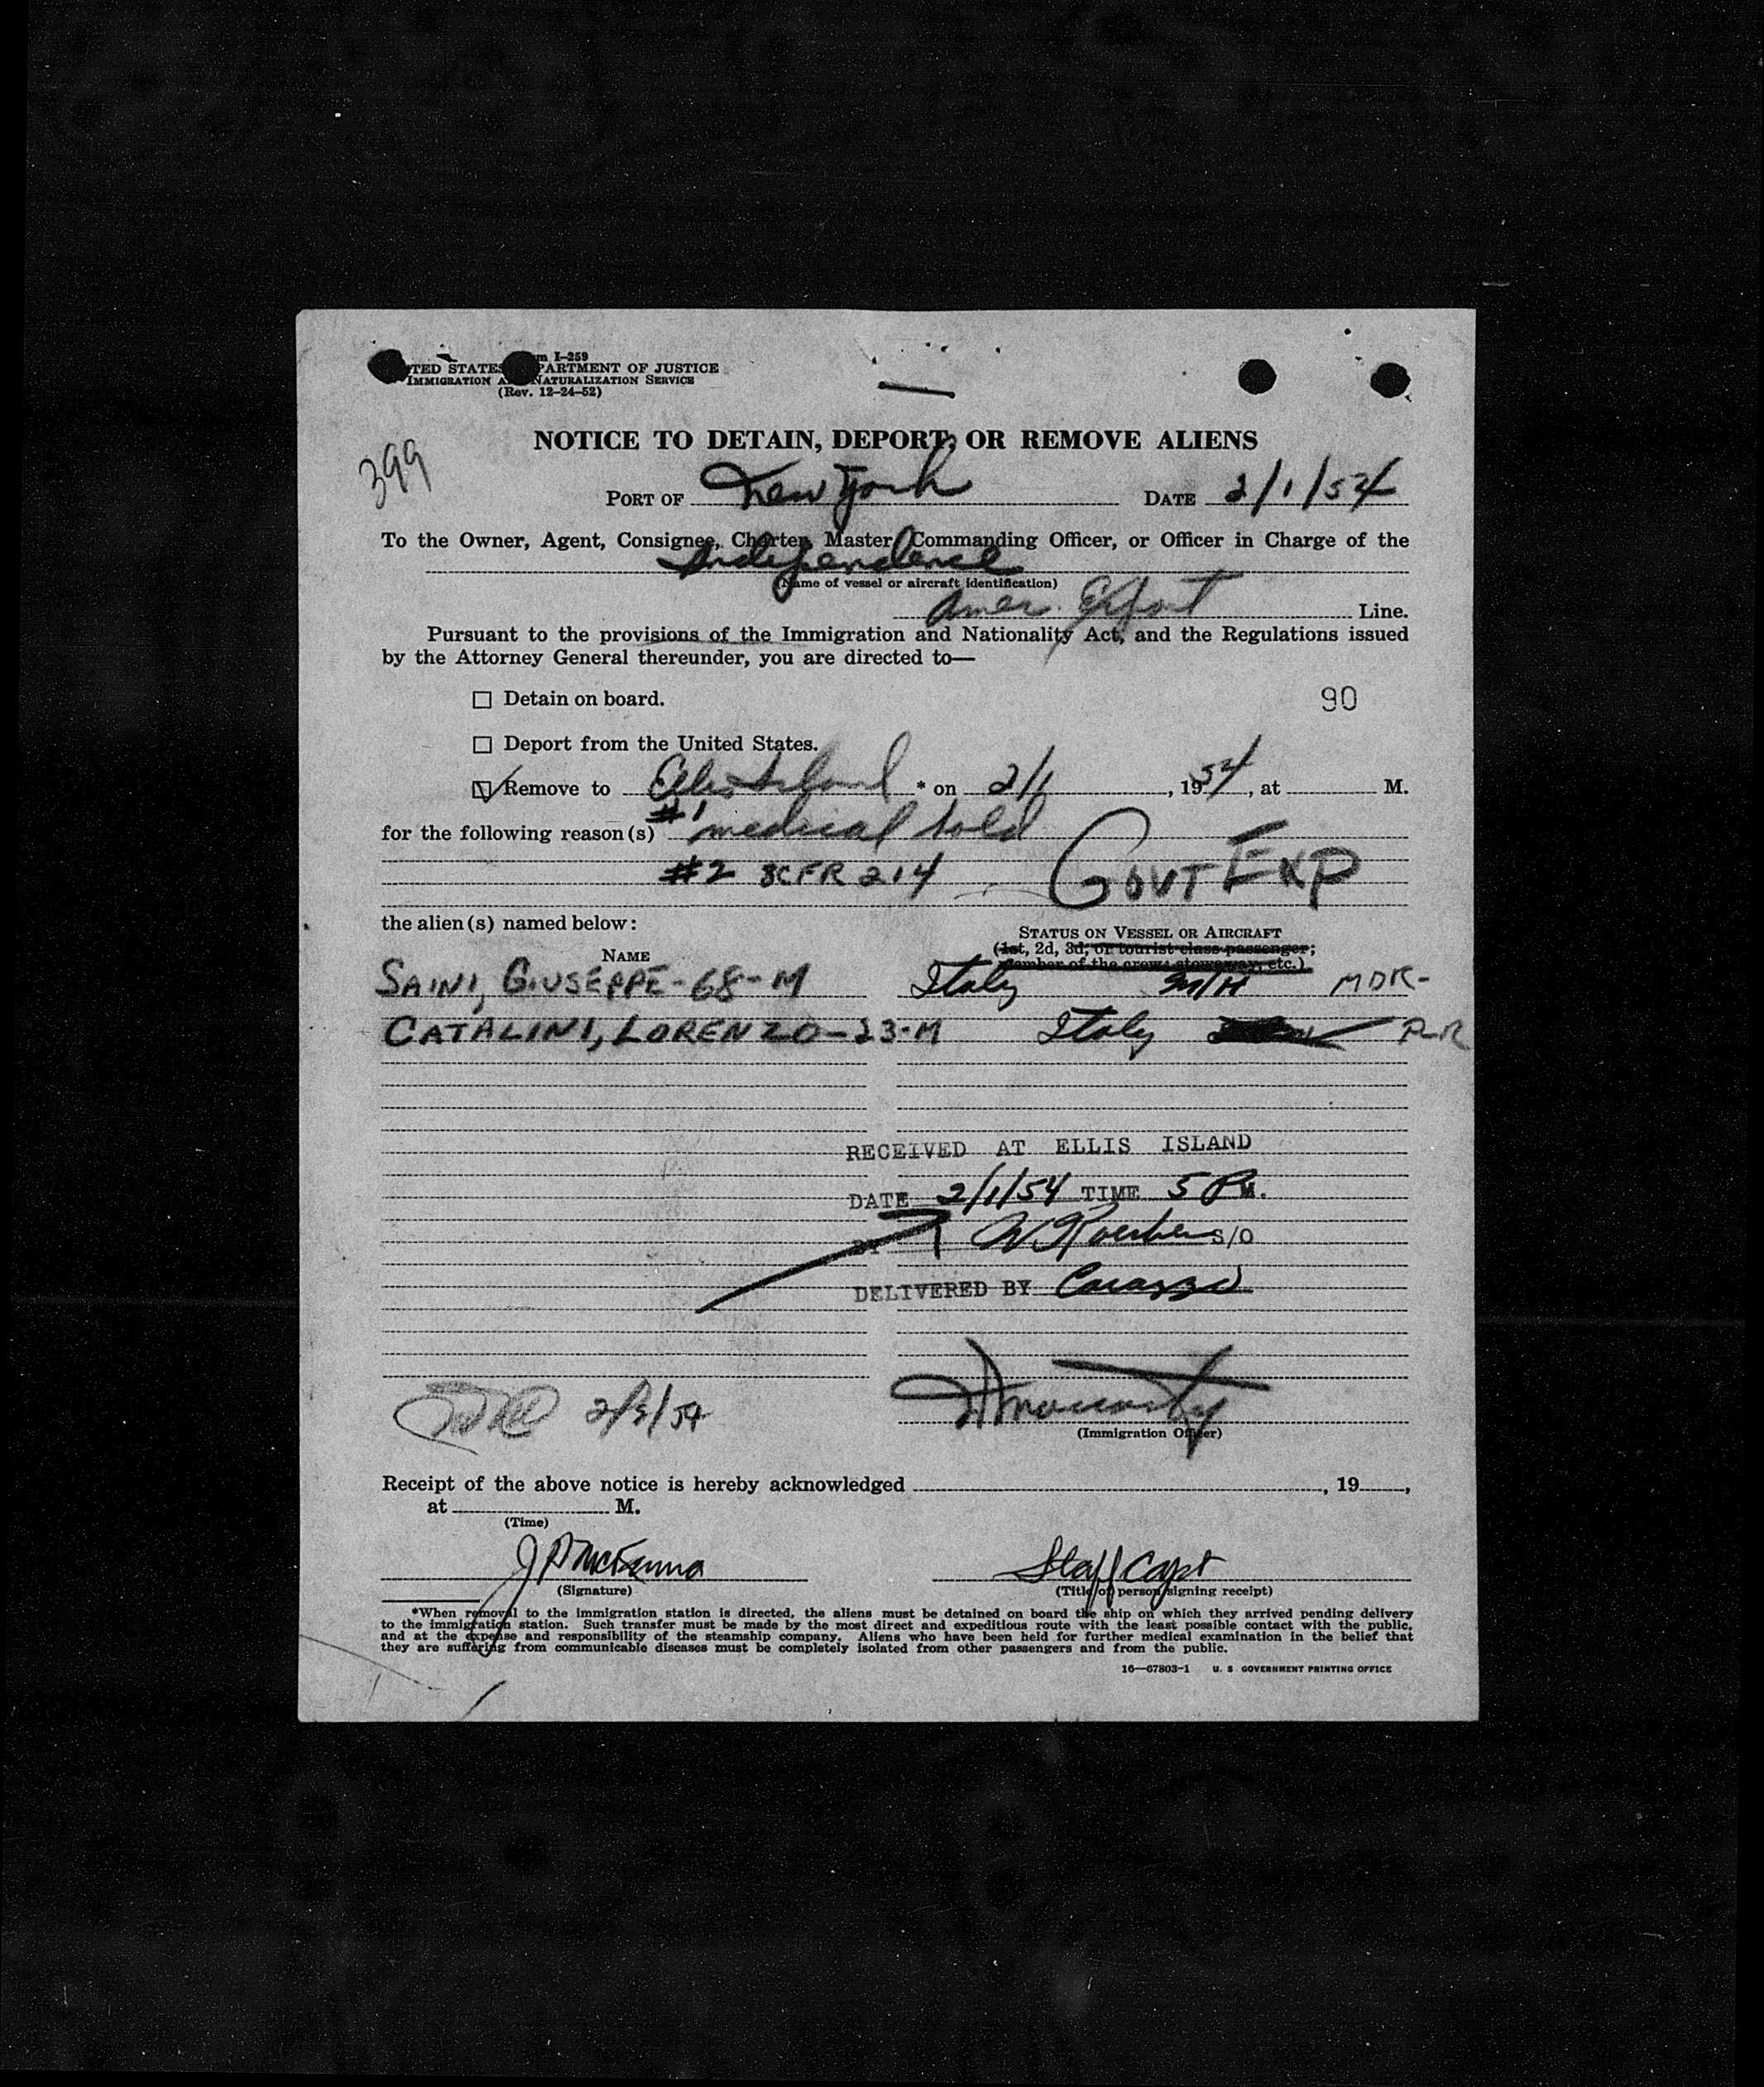 m I-259
TED STATES PARTMENT OF JUSTICE
IMMIGRATION A NATURALIZATION SERVICE
(Rev. 12-24-52)
399
NOTICE TO DETAIN, DEPORT, OR REMOVE ALIENS
PORT OF New York DATE 2/1/54
To the Owner, Agent, Consignee, Charter, Master, Commanding Officer, or Officer in Charge of the
Independence
(Name of vessel or aircraft identification)
Amer. Export Line.
Pursuant to the provisions of the Immigration and Nationality Act, and the Regulations issued
by the Attorney General thereunder, you are directed to—
☐ Detain on board.
90
☐ Deport from the United States.
☑ Remove to Ellis Island * on 2/1, 1954, at M.
for the following reason(s) #1 medical hold
#2 8CFR 214 GOVT EXP
the alien(s) named below:
STATUS ON VESSEL OR AIRCRAFT
(1st, 2d, 3d, or tourist class passenger;
member of the crew; stowaway, etc.)
NAME
SAINI, GIUSEPPE-68-M Italy M/H MDR-
CATALINI, LORENZO-23-M Italy P-R
RECEIVED AT ELLIS ISLAND
DATE 2/1/54 TIME 5 PM.
BY S/O
DELIVERED BY
2/3/54
(Immigration Officer)
Receipt of the above notice is hereby acknowledged , 19 ,
at M.
(Time)
J P McKenna Staff Capt
(Signature) (Title of person signing receipt)
*When removal to the immigration station is directed, the aliens must be detained on board the ship on which they arrived pending delivery
to the immigration station. Such transfer must be made by the most direct and expeditious route with the least possible contact with the public,
and at the expense and responsibility of the steamship company. Aliens who have been held for further medical examination in the belief that
they are suffering from communicable diseases must be completely isolated from other passengers and from the public.
16—67803-1 U. S GOVERNMENT PRINTING OFFICE